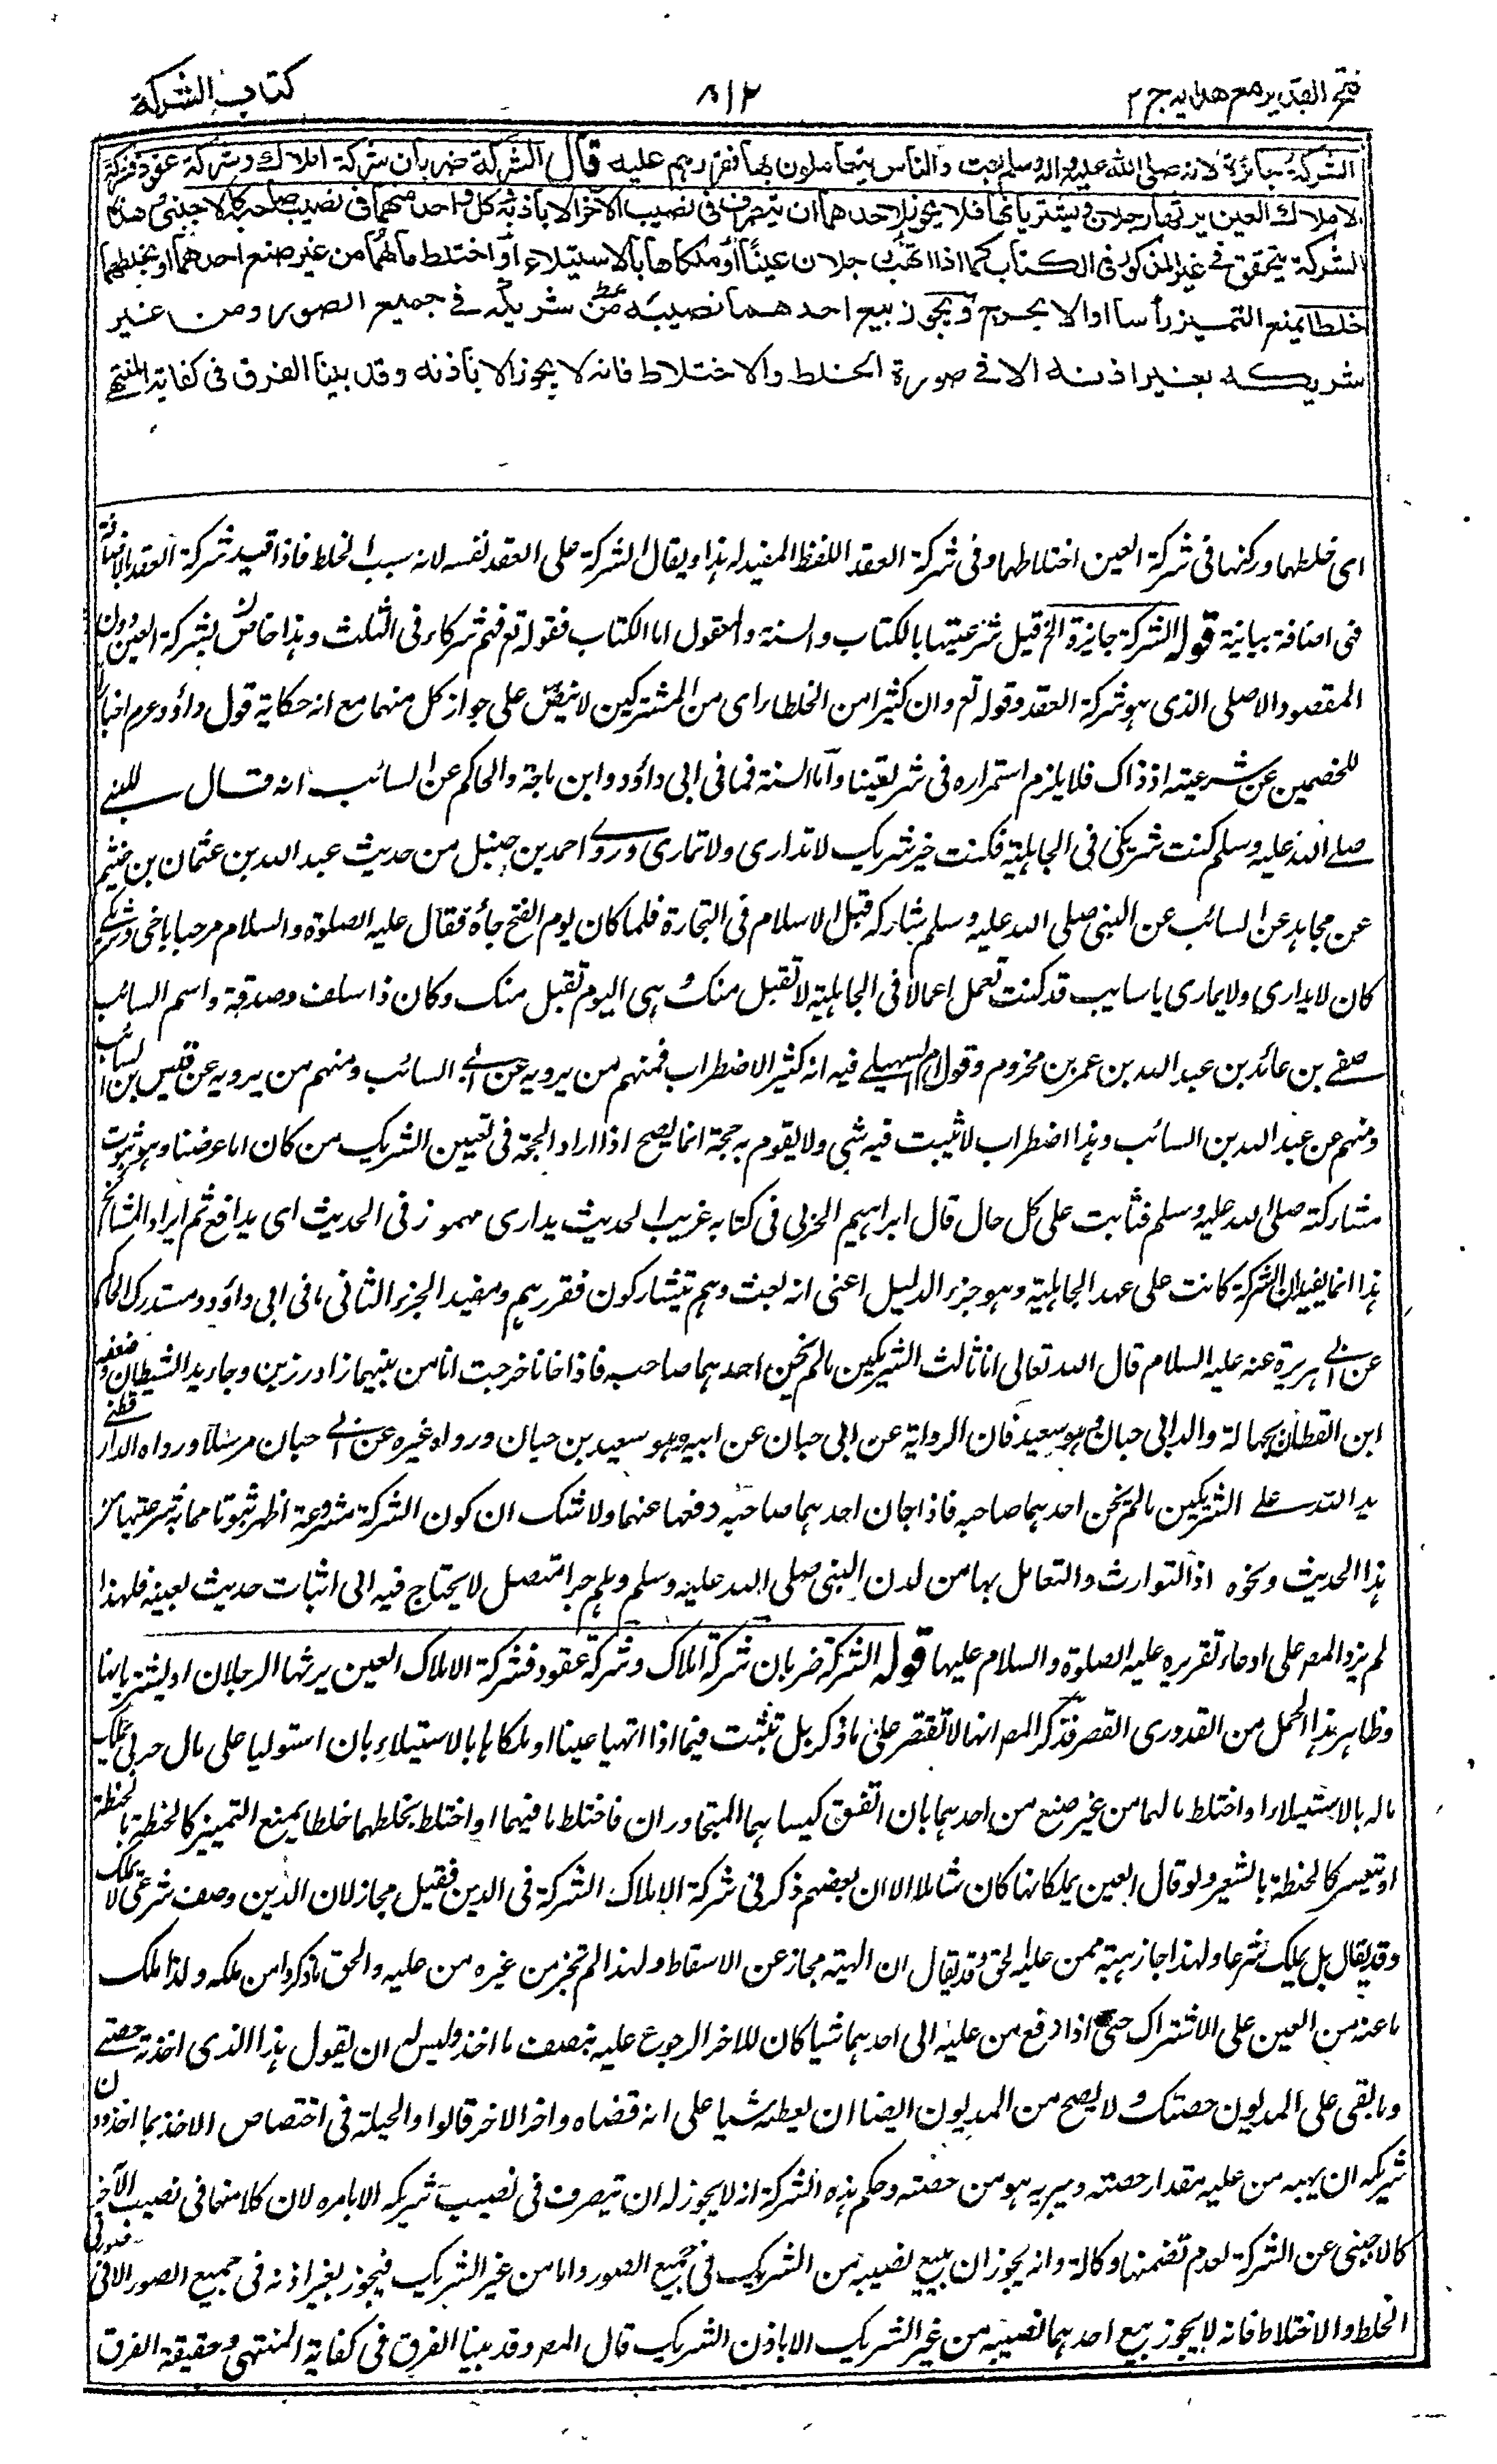 فتح القدير مع هدايه ج ٢
٨١٢
كتاب الشركة
الشركة جائزة لانه صلى الله عليه واله وسلم بعث والناس يتعاملون بها فقررهم عليه قال الشركة ضربان شركة املاك وشركة عقود فشركة
الاملاك العين يرثها رجلان او يشتريانها فلا يجوز لاحدهما ان يتصرف فى نصيب الآخر الا باذنه وكل واحد منهما فى نصيب صاحبه كالاجنبى وهذه
الشركة يتحقق فى غير المذكور فى الكتاب كما اذا اتهب رجلان عينا او ملكاها بالاستيلاء او اختلط مالهما من غير صنع احدهما او بخلطهما
خلطا يمنع التمييز رأسا او الا بحرج ويجوز بيع احدهما نصيبه من شريكه فى جميع الصور ومن غير
شريكه بغير اذنه الا فى صورة الخلط والاختلاط فانه لا يجوز الا باذنه وقد بينا الفرق فى كفاية المنتهى
اى خلطهما وركنها فى شركة العين اختلاطهما وفى شركة العقد اللفظ المفيد له هذا ويقال الشركة على العقد نفسه لانه سبب الخلط فاذا قيد شركة العقد بالاضافة
فهى اضافة بيانية قوله الشركة جايزة الخ قيل شرعيتها بالكتاب والسنة والمعقول اما الكتاب فقوله تع فهم شركاء فى الثلث وهذا خاص بشركة العين دون
المقصود الاصلى الذى هو شركة العقد وقوله تع وان كثيرا من الخلطاء اى من المشتركين لا ينص على جواز كل منهما مع انه حكاية قول داؤد عم اخبارا
للخصمين عن شرعيته اذ ذاك فلا يلزم استمراره فى شريعتنا واما السنة فما فى ابى داؤد وابن ماجة والحاكم عن السائب انه قال للنبى
صلے الله عليه وسلم كنت شريكى فى الجاهلية فكنت خير شريك لا تدارى ولا تمارى وروے احمد بن حنبل من حديث عبد الله بن عثمان بن خثيم
عن مجاهد عن السائب عن النبى صلى الله عليه وسلم شاركه قبل الاسلام فى التجارة فلما كان يوم الفتح جاءه فقال عليه الصلوة والسلام مرحبا باخى وشريكے
كان لا يدارى ولا يمارى يا سايب قد كنت تعمل اعمالا فى الجاهلية لا تقبل منك وهى اليوم تقبل منك وكان ذا سلف وصدقة واسم السائب
صفے بن عائد بن عبد الله بن عمر بن مخزوم وقول السهيلے فيه انه كثير الاضطراب فمنهم من يرويه عن ابے السائب ومنهم من يرويه عن قيس بن السائب
ومنهم عن عبد الله بن السائب وهذا اضطراب لا يثبت فيه شى ولا يقوم به حجة انما يصح اذا اراد الحجة فى تعيين الشريك من كان اما غرضنا وهو ثبوت
مشاركته صلى الله عليه وسلم فثابت على كل حال قال ابراهيم الحربى فى كتابه غريب الحديث يدارى مهموز فى الحديث اى يدافع ثم ايراد المشائخ
هذا انما يفيد ان الشركة كانت على عهد الجاهلية وهو جزء الدليل اعنى انه بعث وهم يتشاركون فقررهم ومفيد الجزء الثانى ما فى ابى داؤد ومستدرك الحاكم
عن ابے هريرة عنه عليه السلام قال الله تعالى انا ثالث الشريكين ما لم يخن احدهما صاحبه فاذا خانا خرجت انا من بينهما زاد رزين وجاء يد الشيطان وضعفه
ابن القطان بجهالة والد ابى حبان وهو سعيد فان الرواية عن ابى حبان عن ابيه وهو سعيد بن حيان ورواه غيره عن ابے حبان مرسلا ورواه الدار قطنے
يد الله علے الشريكين ما لم يخن احدهما صاحبه فاذا خان احدهما صاحبه رفعها عنهما ولا شك ان كون الشركة مشروعة اظهر ثبوتا مما به شرعيتها من
هذا الحديث ونحوه اذ التوارث والتعامل بها من لدن النبى صلى الله عليه وسلم وهلم جرا متصل لا يحتاج فيه الى اثبات حديث بعينه فلهذا
لم يزد المص على ادعاء تقريره عليه الصلوة والسلام عليها قوله الشركة ضربان شركة املاك وشركة عقود فشركة الاملاك العين يرثها الرجلان او يشتريانها
وظاهر هذا الحمل من القدورى القصر فذكر المص انها لا تقتصر على ما ذكر بل تثبت فيما اذا اتهبا عينا او ملكاها بالاستيلاء بان استوليا على مال حربى يملك
ماله بالاستيلاء او اختلط مالهما من غير صنع من احدهما بان انفتق كيساهما المتجاوران فاختلط ما فيهما او اختلط بخلطهما خلطا يمنع التمييز كالحنطة بالحنطة
او يتعسر كالحنطة بالشعير ولو قال العين يملكانها كان شاملا الا ان بعضهم ذكر فى شركة الاملاك الشركة فى الدين فقيل مجاز لان الدين وصف شرعى لا يملك
وقد يقال بل يملك شرعا ولهذا جاز هبته ممن عليه الحق وقد يقال ان الهبة مجاز عن الاسقاط ولهذا لم تجز من غيره من عليه والحق ما ذكروا من ملكه ولذا ملك
ما عنه من العين على الاشتراك حتى اذا دفع من عليه الى احدهما شيا كان للاخر الرجوع عليه بنصف ما اخذ وليس له ان يقول هذا الذى اخذته حصتے
وما بقى على المديون حصتك ولا يصح من المديون ايضا ان يعطيه شيا على انه قضاه واخر الاخر قالوا والحيلة فى اختصاص الاخذ بما اخذ دون
شريكه ان يهبه من عليه مقدار حصته ويبريه هو من حصته وحكم هذه الشركة انه لا يجوز له ان يتصرف فى نصيب شريكه الا بامره لان كلا منهما فى نصيب الآخر
كالاجنبى عن الشركة لعدم تضمنها وكالة وانه يجوز ان يبيع نصيبه من الشريك فى جميع الصور واما من غير الشريك فيجوز بغير اذنه فى جميع الصور الا فى صورتى
الخلط والاختلاط فانه لا يجوز بيع احدهما نصيبه من غير الشريك الا باذن الشريك قال المص وقد بينا الفرق فى كفاية المنتهى وحقيقة الفرق